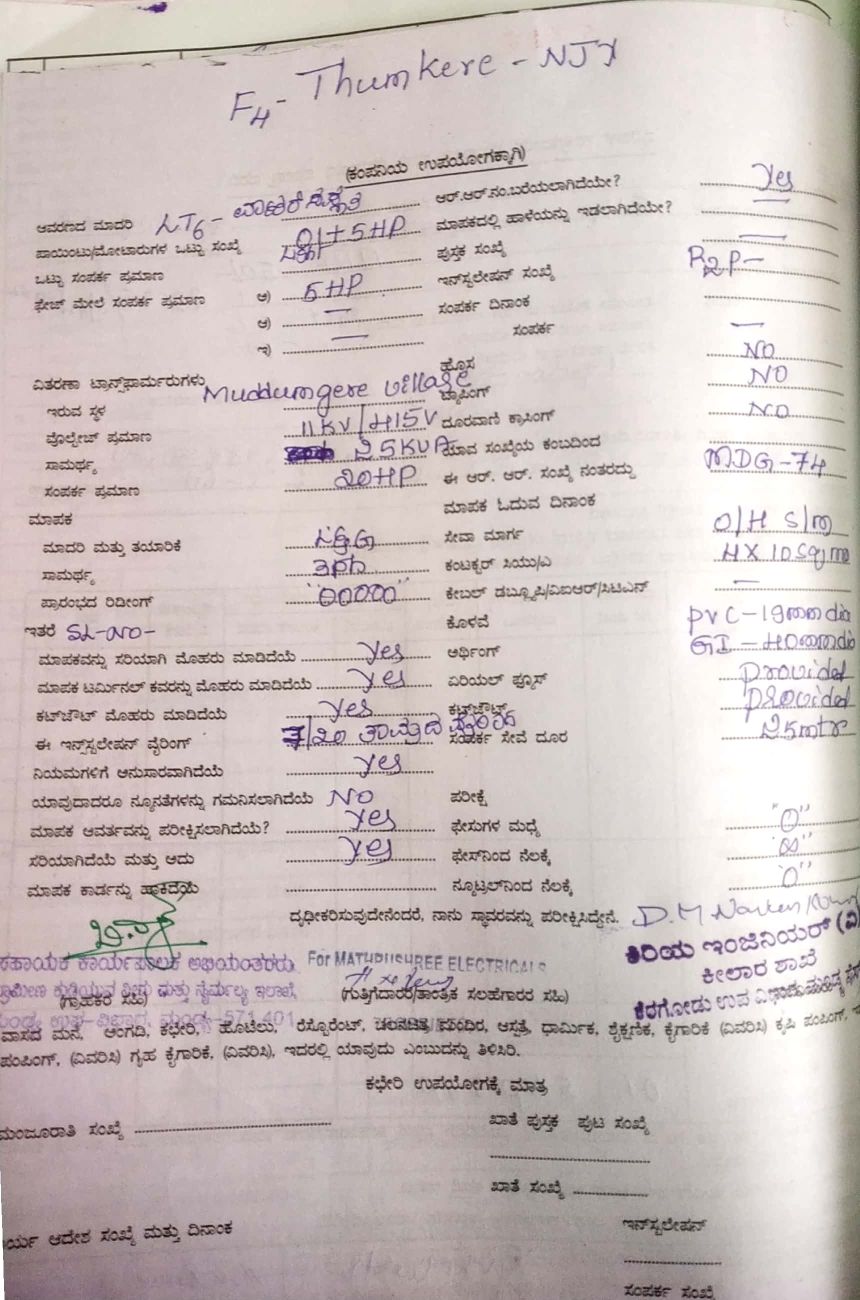 F4 - Thumkere - NJY
(ಕಂಪನಿಯ ಉಪಯೋಗಕ್ಕಾಗಿ)
ಆವರಣದ ಮಾದರಿ LT6 - ವಾಟರ್ ಸಪ್ಲೈ ಆರ್.ಆರ್.ನಂ.ಬರೆಯಲಾಗಿದೆಯೇ? Yes
ಪಾಯಿಂಟು/ಮೋಟಾರುಗಳ ಒಟ್ಟು ಸಂಖ್ಯೆ 01+5HP ಮಾಪಕದಲ್ಲಿ ಹಾಳೆಯನ್ನು ಇಡಲಾಗಿದೆಯೇ? —
ಒಟ್ಟು ಸಂಪರ್ಕ ಪ್ರಮಾಣ ಪುಸ್ತಕ ಸಂಖ್ಯೆ —
ಫೇಜ್ ಮೇಲೆ ಸಂಪರ್ಕ ಪ್ರಮಾಣ ಅ) 5HP ಇನ್‌ಸ್ಟಲೇಷನ್ ಸಂಖ್ಯೆ R2P-
ಆ) — ಸಂಪರ್ಕ ದಿನಾಂಕ
ಇ) — ಸಂಪರ್ಕ —
ವಿತರಣಾ ಟ್ರಾನ್ಸ್‌ಫಾರ್ಮರುಗಳು ಹೊಸ NO
ಇರುವ ಸ್ಥಳ Muddumgere village ಟ್ಯಾಪಿಂಗ್ NO
ವೋಲ್ಟೇಜ್ ಪ್ರಮಾಣ 11KV/415V ದೂರವಾಣಿ ಕ್ರಾಸಿಂಗ್ NO
ಸಾಮರ್ಥ್ಯ 25KVA ಯಾವ ಸಂಖ್ಯೆಯ ಕಂಬದಿಂದ
ಸಂಪರ್ಕ ಪ್ರಮಾಣ 20HP ಈ ಆರ್. ಆರ್. ಸಂಖ್ಯೆ ನಂತರದ್ದು MDG-74
ಮಾಪಕ ಮಾಪಕ ಓದುವ ದಿನಾಂಕ
ಮಾದರಿ ಮತ್ತು ತಯಾರಿಕೆ L&G ಸೇವಾ ಮಾರ್ಗ O/H S/m
ಸಾಮರ್ಥ್ಯ 3Ph ಕಂಟಕ್ಟರ್ ಸಿಯು/ಎ 4X10sqmm
ಪ್ರಾರಂಭದ ರಿಡೀಂಗ್ "00000" ಕೇಬಲ್ ಡಬ್ಲ್ಯೂಪಿ/ವಿಐಆರ್/ಸಿಟಿಎಸ್ —
ಇತರೆ SL-NO- ಕೊಳವೆ PVC-19mm dia
ಮಾಪಕವನ್ನು ಸರಿಯಾಗಿ ಮೊಹರು ಮಾಡಿದೆಯೆ Yes ಅರ್ಥಿಂಗ್ GI-40mm dia
ಮಾಪಕ ಟರ್ಮಿನಲ್ ಕವರನ್ನು ಮೊಹರು ಮಾಡಿದೆಯೆ Yes ಏರಿಯಲ್ ಫ್ಯೂಸ್ Provided
ಕಟ್‌ಔಟ್ ಮೊಹರು ಮಾಡಿದೆಯೆ Yes ಕಟ್‌ಔಟ್ Provided
ಈ ಇನ್‌ಸ್ಟಲೇಷನ್ ವೈರಿಂಗ್ 7/20 ತಾಮ್ರದ ಸಂಪರ್ಕ ಸೇವೆ ದೂರ 25mtr
ನಿಯಮಗಳಿಗೆ ಅನುಸಾರವಾಗಿದೆಯೆ Yes
ಯಾವುದಾದರೂ ನ್ಯೂನತೆಗಳನ್ನು ಗಮನಿಸಲಾಗಿದೆಯೆ NO ಪರೀಕ್ಷೆ
ಮಾಪಕ ಆವರ್ತವನ್ನು ಪರೀಕ್ಷಿಸಲಾಗಿದೆಯೆ? Yes ಫೇಸುಗಳ ಮಧ್ಯೆ "0"
ಸರಿಯಾಗಿದೆಯೆ ಮತ್ತು ಅದು Yes ಫೇಸ್‌ನಿಂದ ನೆಲಕ್ಕೆ "∞"
ಮಾಪಕ ಕಾರ್ಡನ್ನು ಹಾಕಿದೆಯೆ ನ್ಯೂಟ್ರಲ್‌ನಿಂದ ನೆಲಕ್ಕೆ "0"
ದೃಢೀಕರಿಸುವುದೇನೆಂದರೆ, ನಾನು ಸ್ಥಾವರವನ್ನು ಪರೀಕ್ಷಿಸಿದ್ದೇನೆ.
ಸಹಾಯಕ ಕಾರ್ಯಪಾಲಕ ಅಭಿಯಂತರರು For MATHRUSHREE ELECTRICALS ಕಿರಿಯ ಇಂಜಿನಿಯರ್ (ವಿ)
ಗ್ರಾಮೀಣ ಕುಡಿಯುವ ನೀರು ಮತ್ತು ನೈರ್ಮಲ್ಯ ಇಲಾಖೆ, ಕೀಲಾರ ಶಾಖೆ
(ಗ್ರಾಹಕರ ಸಹಿ) (ಗುತ್ತಿಗೆದಾರರ/ತಾಂತ್ರಿಕ ಸಲಹೆಗಾರರ ಸಹಿ) ಕೆರಗೋಡು ಉಪ ವಿಭಾಗ
ಮಂಡ್ಯ ಉಪ-ವಿಭಾಗ, ಮಂಡ್ಯ-571 401
ವಾಸದ ಮನೆ, ಅಂಗಡಿ, ಕಛೇರಿ, ಹೊಟೆಲು, ರೆಸ್ಟೋರೆಂಟ್, ಚಲನಚಿತ್ರ ಮಂದಿರ, ಆಸ್ಪತ್ರೆ, ಧಾರ್ಮಿಕ, ಶೈಕ್ಷಣಿಕ, ಕೈಗಾರಿಕೆ (ವಿವರಿಸಿ) ಕೃಷಿ ಪಂಪಿಂಗ್,
ಪಂಪಿಂಗ್, (ವಿವರಿಸಿ) ಗೃಹ ಕೈಗಾರಿಕೆ, (ವಿವರಿಸಿ), ಇದರಲ್ಲಿ ಯಾವುದು ಎಂಬುದನ್ನು ತಿಳಿಸಿರಿ.
ಕಛೇರಿ ಉಪಯೋಗಕ್ಕೆ ಮಾತ್ರ
ಮಂಜೂರಾತಿ ಸಂಖ್ಯೆ ಖಾತೆ ಪುಸ್ತಕ ಪುಟ ಸಂಖ್ಯೆ
ಖಾತೆ ಸಂಖ್ಯೆ
ರ್ಯ ಆದೇಶ ಸಂಖ್ಯೆ ಮತ್ತು ದಿನಾಂಕ ಇನ್‌ಸ್ಟಲೇಷನ್
ಸಂಪರ್ಕ ಸಂಖ್ಯೆ